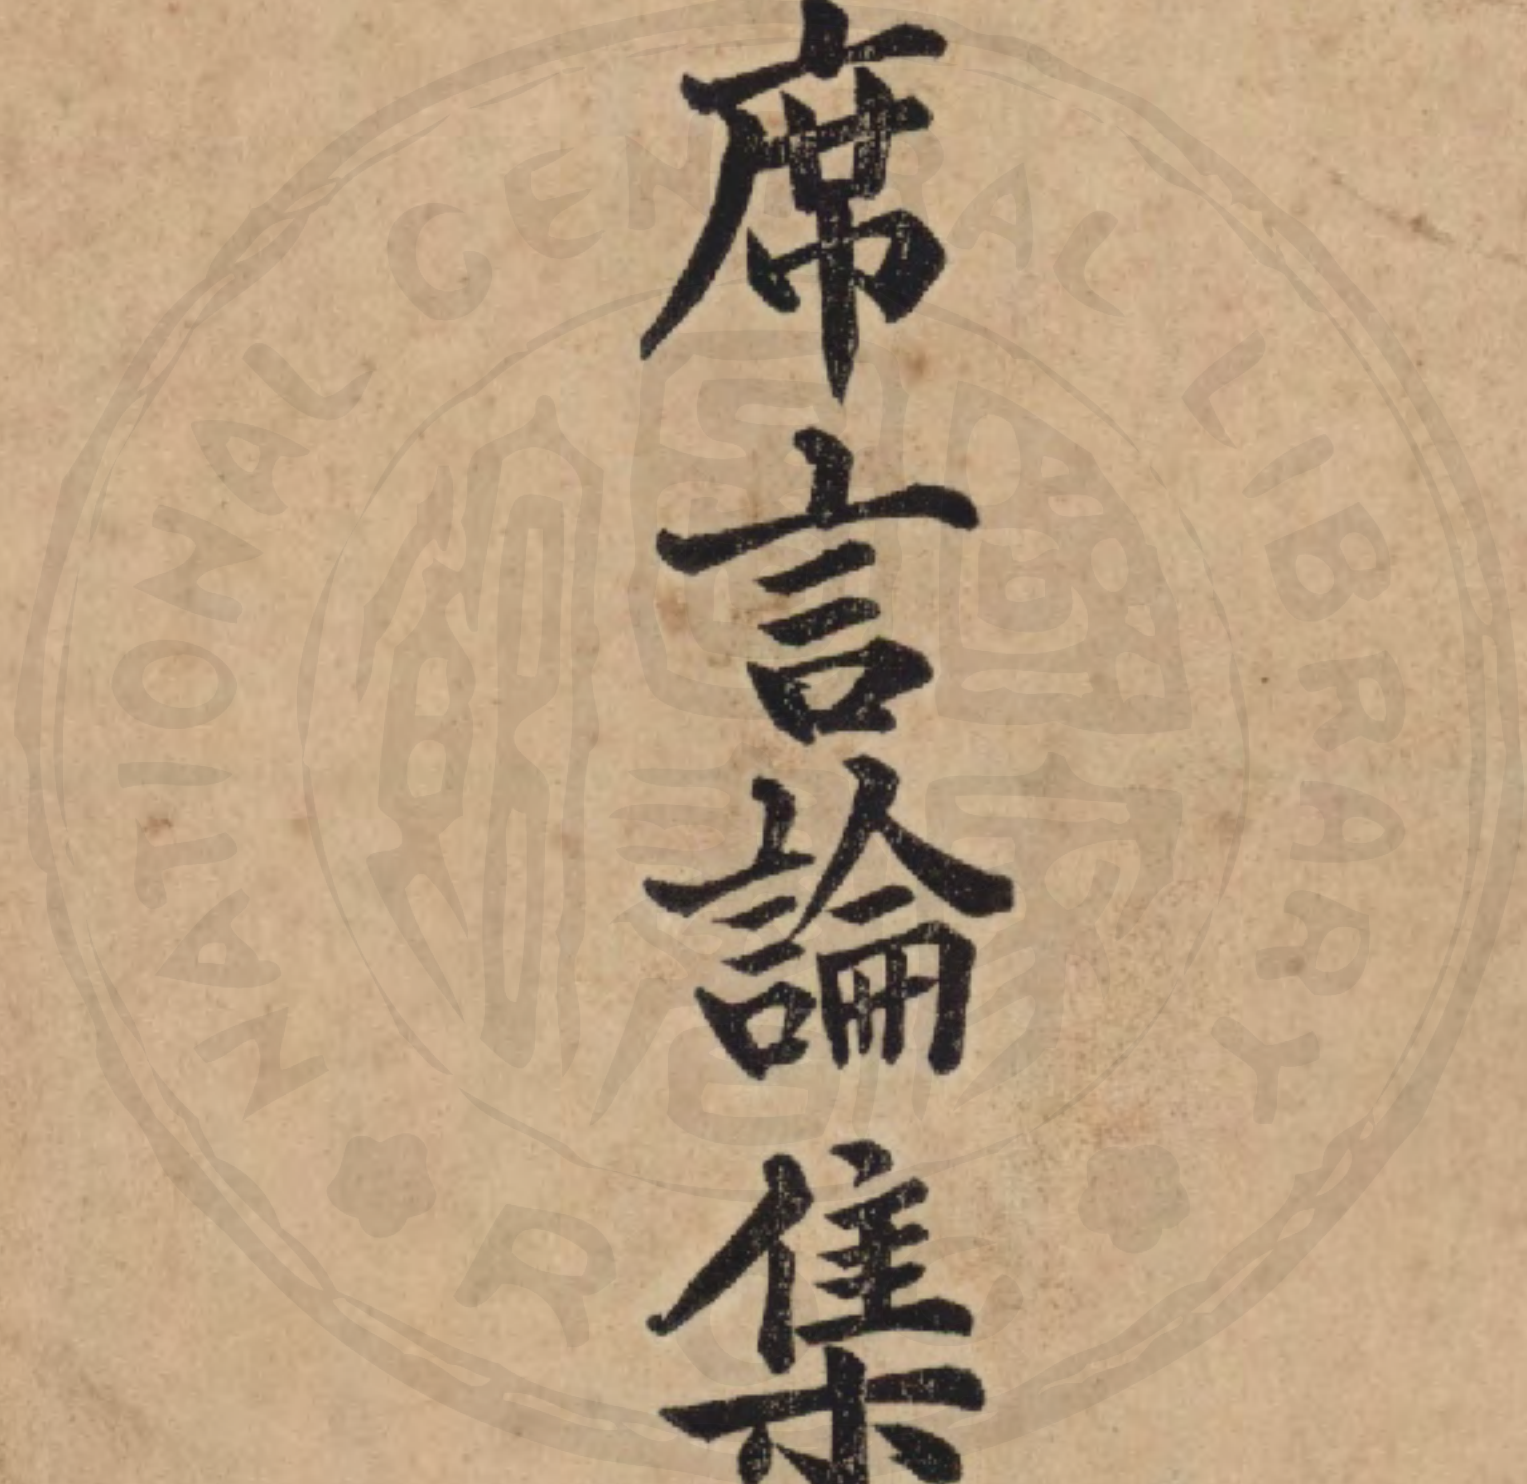 席言論集
NATIONAL CENTRAL LIBRARY